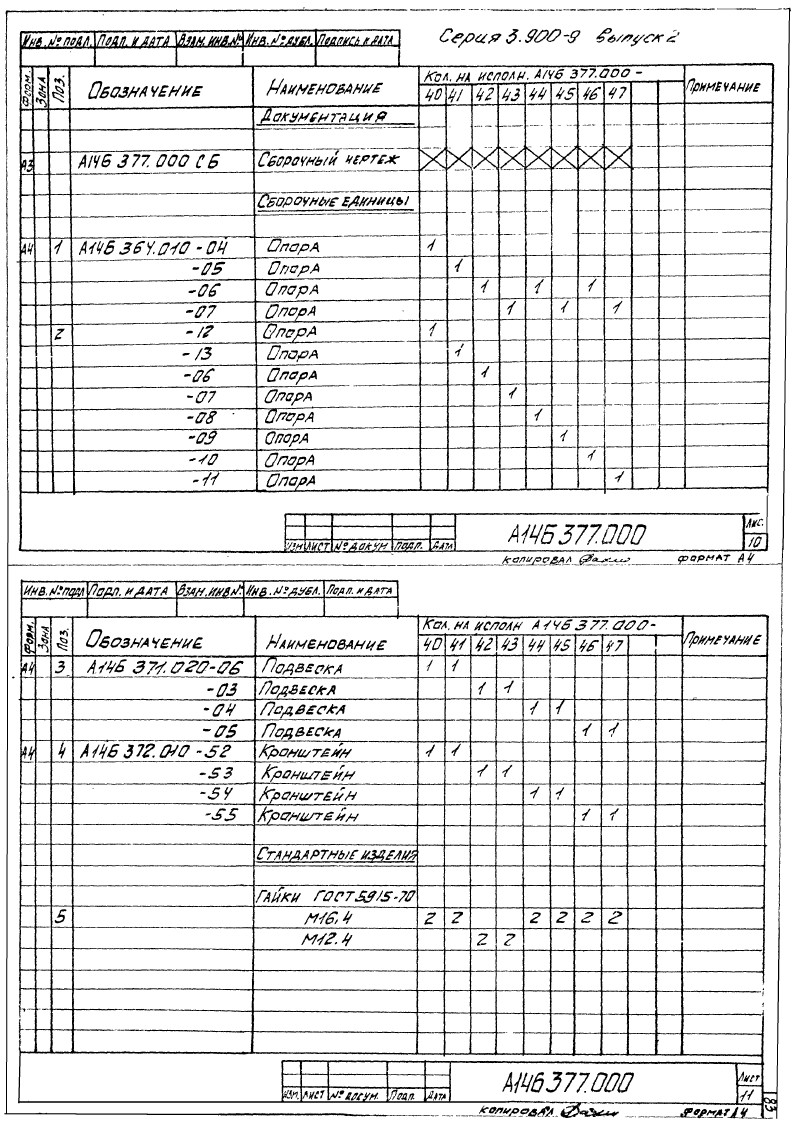 Серия 3.900-9 выпуск 2
Инв. № подл. Подп. и дата Взам. инв. № Инв. № дубл. Подпись и дата
Форм. Зона Поз. Обозначение Наименование Кол. на исполн. А14Б 377.000 - Примечание
40 41 42 43 44 45 46 47
Документация
А3 А14Б 377.000 СБ Сборочный чертеж X X X X X X X X
Сборочные единицы
А4 1 А14Б 364.010 -04 Опора 1
-05 Опора 1
-06 Опора 1 1 1
-07 Опора 1 1 1
2 -12 Опора 1
-13 Опора 1
-06 Опора 1
-07 Опора 1
-08 Опора 1
-09 Опора 1
-10 Опора 1
-11 Опора 1
А14Б 377.000
Лис. 10
Изм Лист № докум Подп. Дата
копировал формат А4
Инв. № подл Подп. и дата Взам. инв № Инв. № дубл. Подп. и дата
Форм. Зона Поз. Обозначение Наименование Кол. на исполн А14Б 377.000- Примечание
40 41 42 43 44 45 46 47
А4 3 А14Б 371.020-06 Подвеска 1 1
-03 Подвеска 1 1
-04 Подвеска 1 1
-05 Подвеска 1 1
А4 4 А14Б 372.010 -52 Кронштейн 1 1
-53 Кронштейн 1 1
-54 Кронштейн 1 1
-55 Кронштейн 1 1
Стандартные изделия
Гайки ГОСТ 5915-70
5 М16.4 2 2 2 2 2 2
М12.4 2 2
А14Б 377.000
Лист 11
Изм. Лист № докум. Подп. Дата
копировал формат А4
83